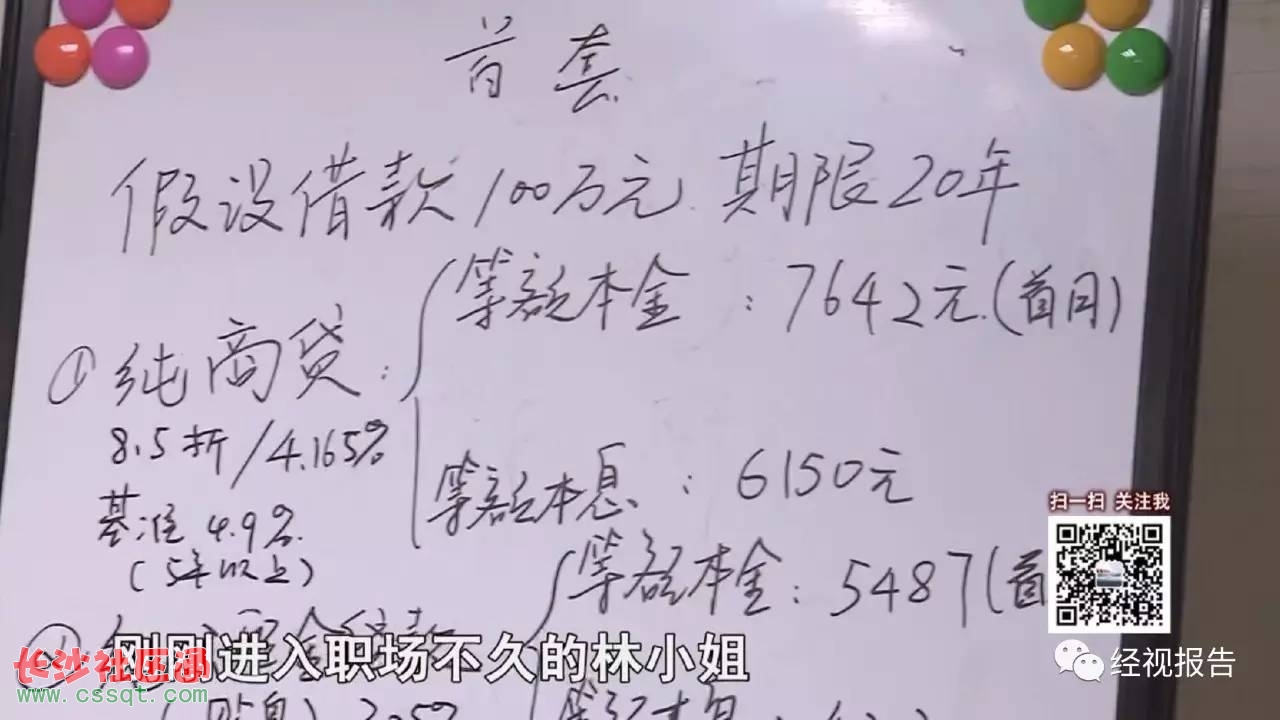 首套
假设借款100万元 期限20年
等额本金：7642元(首月)
①纯商贷：
8.5折/4.165%
基准4.9%
(5年以上)
等额本息：6150元
等额本金：5487(首
扫一扫 关注我
刚刚进入职场不久的林小姐
长沙社区通
www.cssqt.com
经视报告